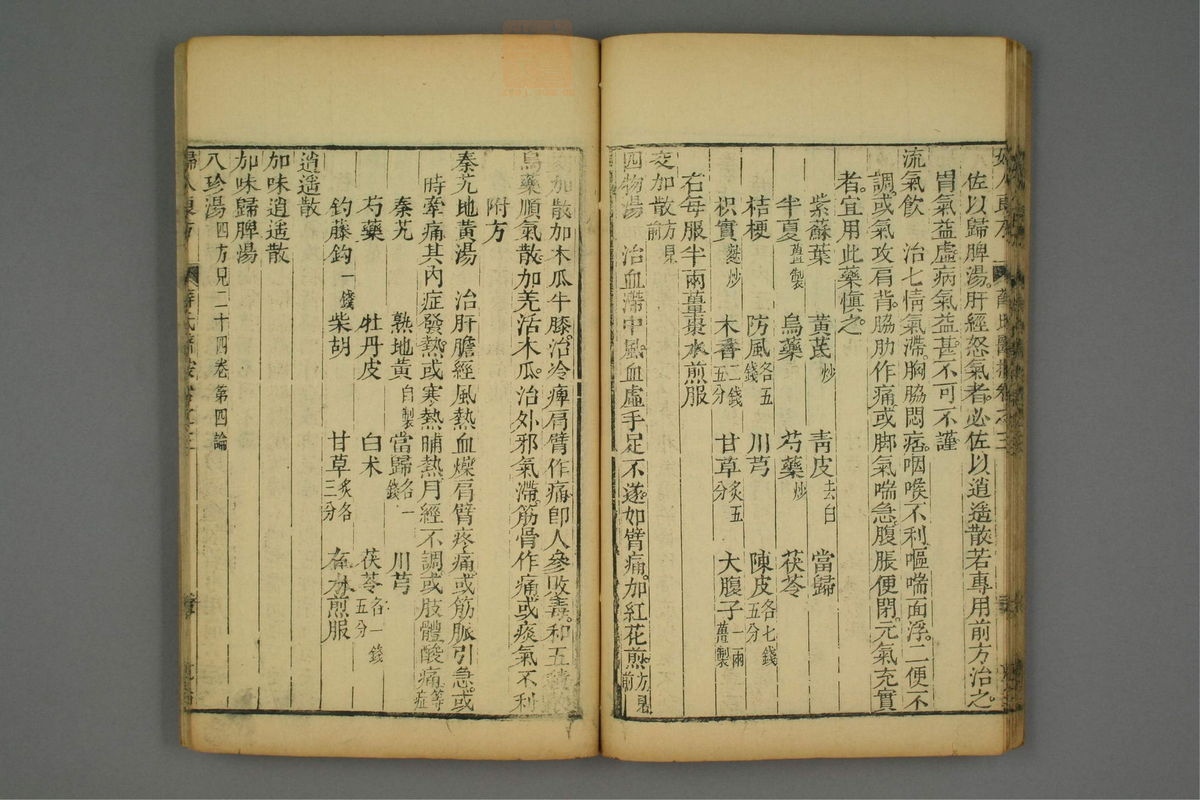 佐以歸脾湯。肝經怒氣者。必佐以逍遙散若專用前方治之。
胃氣益虛病氣益甚。不可不謹
流氣飲　治七情氣滯。胸脇悶痞。咽喉不利。嘔喘面浮。二便不
調。或氣攻肩背。脇肋作痛或脚氣喘急腹脹便閉。元氣充實
者。宜用此藥愼之。
紫蘇葉　黃芪炒　青皮去白　當歸
半夏薑製　烏藥　芍藥炒　茯苓
桔梗　防風各五錢　川芎　陳皮各七錢五分
枳實麩炒　木香二錢五分　甘草炙五分　大腹子一兩薑製
右每服半兩薑棗水煎服
交加散方見前
四物湯　治血滯中風。血虛手足不遂。如臂痛。加紅花煎。方見前
加散加木瓜牛膝。治冷痺肩臂作痛卽人參敗毒。和五積
烏藥順氣散加羌活木瓜。治外邪氣滯。筋骨作痛或痰氣不利
附方
秦艽地黃湯　治肝膽經風熱血燥肩臂疼痛或筋脈引急。或
時牽痛其內症發熱。或寒熱晡熱月經不調或肢體酸痛。等症
秦艽　熟地黃自製　當歸各一錢　川芎
芍藥　牡丹皮　白朮　茯苓各一錢五分
釣藤鈎一錢　柴胡　甘草炙各三分　右水煎服
逍遙散
加味逍遙散
加味歸脾湯
八珍湯四方見二十四卷第四論
婦人良方